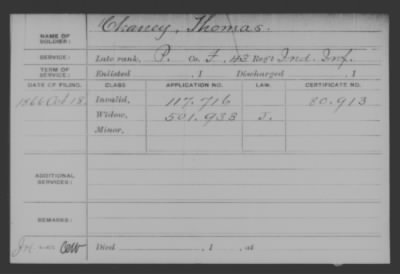 NAME OF SOLDIER: Chancy, Thomas.
SERVICE: Late rank, P. Co. F, 43 Reg't Ind. Inf.
TERM OF SERVICE: Enlisted , 1 Discharged , 1
DATE OF FILING. CLASS. APPLICATION NO. LAW. CERTIFICATE NO.
1866 Oct 18. Invalid, 117.716 80.913
Widow, 501.933 J.
Minor,
ADDITIONAL SERVICES:
REMARKS:
Died , 1 , at